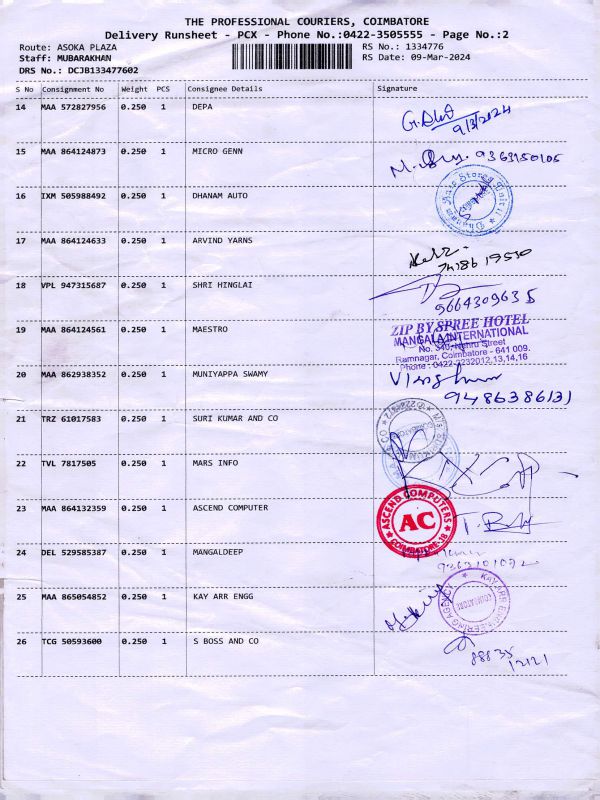 THE PROFESSIONAL COURIERS, COIMBATORE
Delivery Runsheet - PCX - Phone No.:0422-3505555 - Page No.:2
Route: ASOKA PLAZA RS No.: 1334776
Staff: MUBARAKHAN RS Date: 09-Mar-2024
DRS No.: DCJB133477602
S No Consignment No Weight PCS Consignee Details Signature
14 MAA 572827956 0.250 1 DEPA
9/3/2024
15 MAA 864124873 0.250 1 MICRO GENN
9363150105
16 IXM 505988492 0.250 1 DHANAM AUTO
17 MAA 864124633 0.250 1 ARVIND YARNS
18 VPL 947315687 0.250 1 SHRI HINGLAI
9664309635
19 MAA 864124561 0.250 1 MAESTRO
ZIP BY SPREE HOTEL
MANGALA INTERNATIONAL
No. 340, Nehru Street
Ramnagar, Coimbatore - 641 009.
Phone : 0422-2232012,13,14,16
20 MAA 862938352 0.250 1 MUNIYAPPA SWAMY
9486386131
21 TRZ 61017583 0.250 1 SURI KUMAR AND CO
22 TVL 7817505 0.250 1 MARS INFO
23 MAA 864132359 0.250 1 ASCEND COMPUTER
ASCEND COMPUTERS
AC
COIMBATORE-18
24 DEL 529585387 0.250 1 MANGALDEEP
25 MAA 865054852 0.250 1 KAY ARR ENGG
KAY ARR ENGINEERING AGENCY
COIMBATORE
26 TCG 50593600 0.250 1 S BOSS AND CO